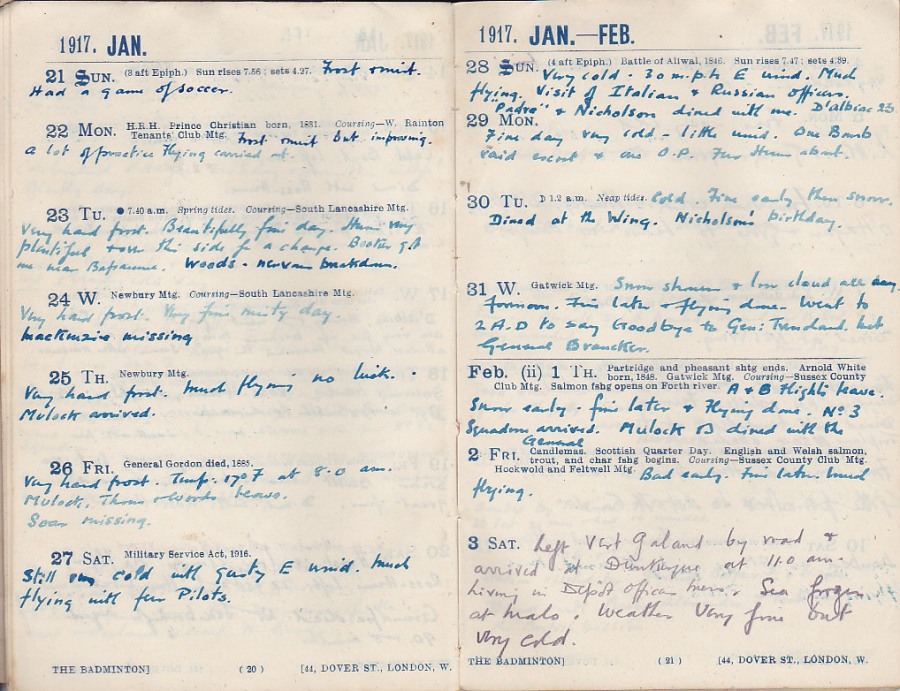 1917. JAN.
21 SUN. (3 aft Epiph.) Sun rises 7.56; sets 4.27. Frost omit.
Had a game of soccer.
22 MON. H.R.H. Prince Christian born, 1831. Coursing—W. Rainton
Tenants' Club Mtg. Frost omit but improving.
A lot of practice flying carried out.
23 TU. ● 7.40 a.m. Spring tides. Coursing—South Lancashire Mtg.
Very hard frost. Beautifully fine day. Huns very
plentiful & over this side for a change. Booker got
one near Bapaume. Woods - nervous breakdown.
24 W. Newbury Mtg. Coursing—South Lancashire Mtg.
Very hard frost. Very fine misty day.
Mackenzie missing
25 TH. Newbury Mtg.
Very hard frost. Much flying no luck.
Mulock arrived.
26 FRI. General Gordon died, 1885.
Very hard frost. Temp. 17° F at 8.0 am.
Mulock, Thom & Woods leaves.
Soar missing.
27 SAT. Military Service Act, 1916.
Still very cold with gusty E wind. Much
flying with few Pilots.
THE BADMINTON] (20) [44, DOVER ST., LONDON, W.
1917. JAN.—FEB.
28 SUN. (4 aft Epiph.) Battle of Aliwal, 1846. Sun rises 7.47; sets 4.39.
Very cold - 30 m.p.h. E wind. Much
flying. Visit of Italian & Russian officers.
"Padre" & Nicholson dined with me. D'Albiac 23.
29 MON.
Fine day very cold - little wind. One Bomb
raid escort & one O.P. Few Huns about.
30 TU. 1.12 a.m. Neap tides. Cold. Fine early then snow.
Dined at the Wing. Nicholson's birthday.
31 W. Gatwick Mtg. Snow showers & low cloud all day
forenoon. Fine later & flying done. Went to
2 A.D to say Goodbye to Gen: Trenchard. Met
General Brancker.
Feb. (ii) 1 TH. Partridge and pheasant shtg ends. Arnold White
born, 1848. Gatwick Mtg. Coursing—Sussex County
Club Mtg. Salmon fshg opens on Forth river. A & B Flights leave.
Snow early - fine later & flying done. No 3
Squadron arrived. Mulock & dined with the
General
2 FRI. Candlemas. Scottish Quarter Day. English and Welsh salmon,
trout, and char fshg begins. Coursing—Sussex County Club Mtg.
Hockwold and Feltwell Mtg. Bad early. Fine later. Much
flying.
3 SAT. Left Vert Galand by road &
arrived at Dunkerque at 11.0 am.
Living in Depôt Officers mess. Sea frozen
at Malo. Weather very fine but
very cold.
THE BADMINTON] (21) [44, DOVER ST., LONDON, W.